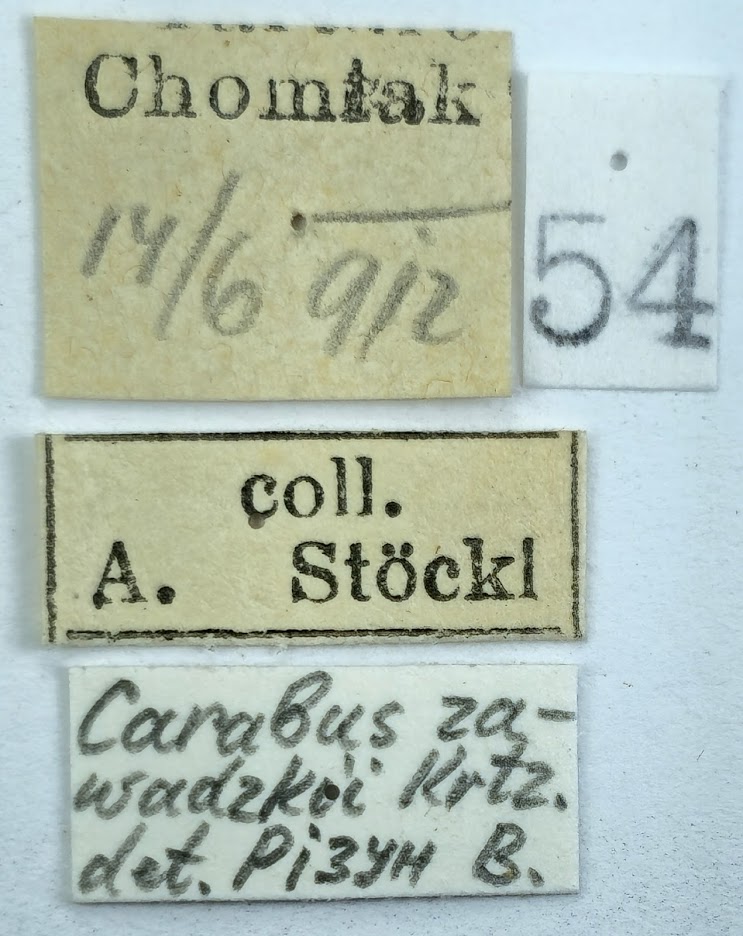 Chomiak
14/6 912
54
coll.
A. Stöckl
Carabus za-
wadzkii Krtz.
det. Різун В.